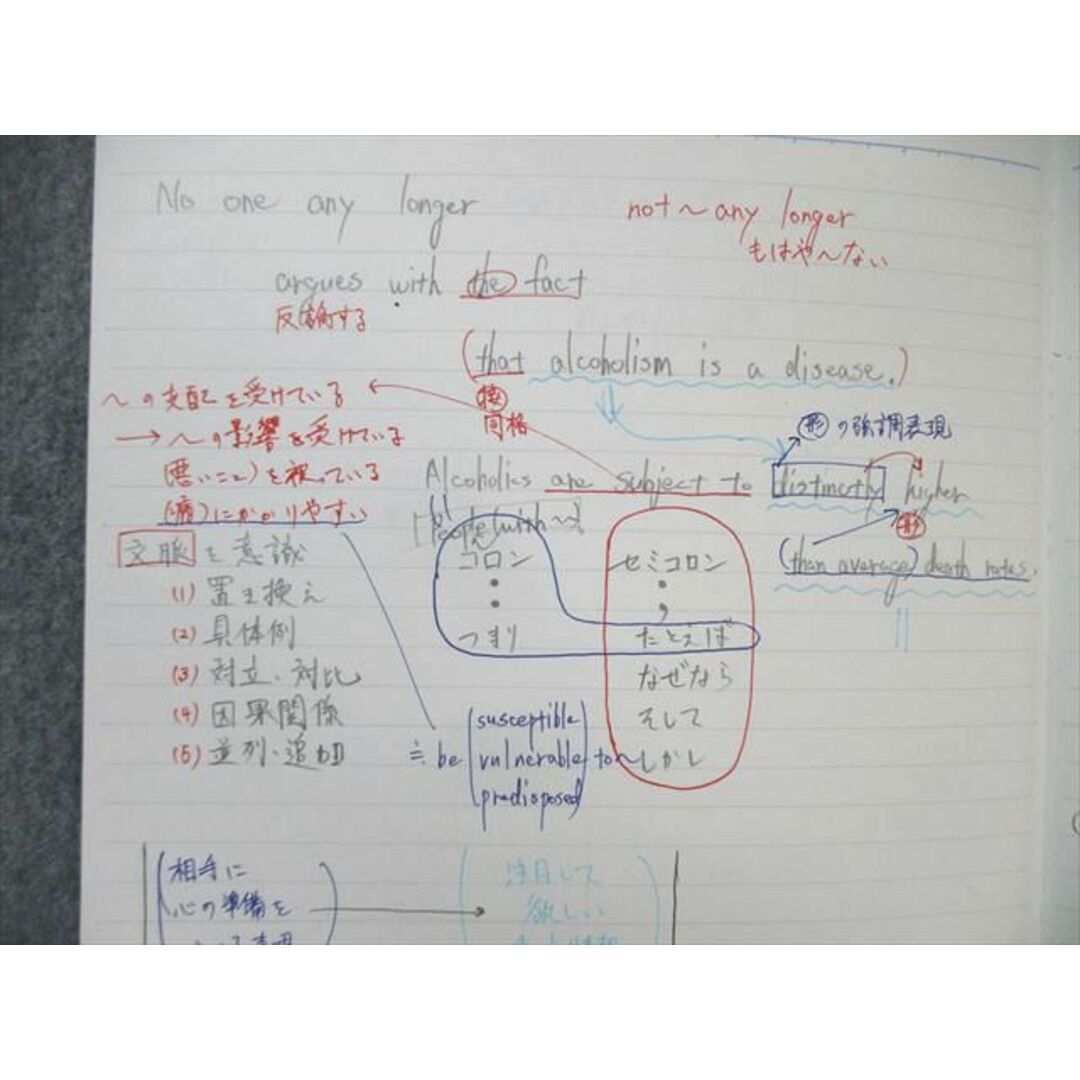 No one any longer
not ~ any longer
もはや~ない
argues with the fact
反論する
(that alcoholism is a disease.)
接
同格
~の支配を受けている
→ ~の影響を受けている
(悪いこと)を被っている
(病)にかかりやすい
形の強調表現
Alcoholics are subject to distinctly higher
形
[people (with ~)]
(than average) death rates.
文脈を意識
(1) 置き換え
(2) 具体例
(3) 対立・対比
(4) 因果関係
(5) 並列・追加
コロン
:
つまり
セミコロン
;
たとえば
なぜなら
そして
しかし
≒ be (susceptible
vulnerable
predisposed) to ~
相手に
心の準備を
注目して
欲しい